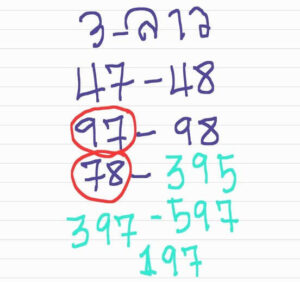 3-ลาว
47-48
97-98
78-395
397-597
197